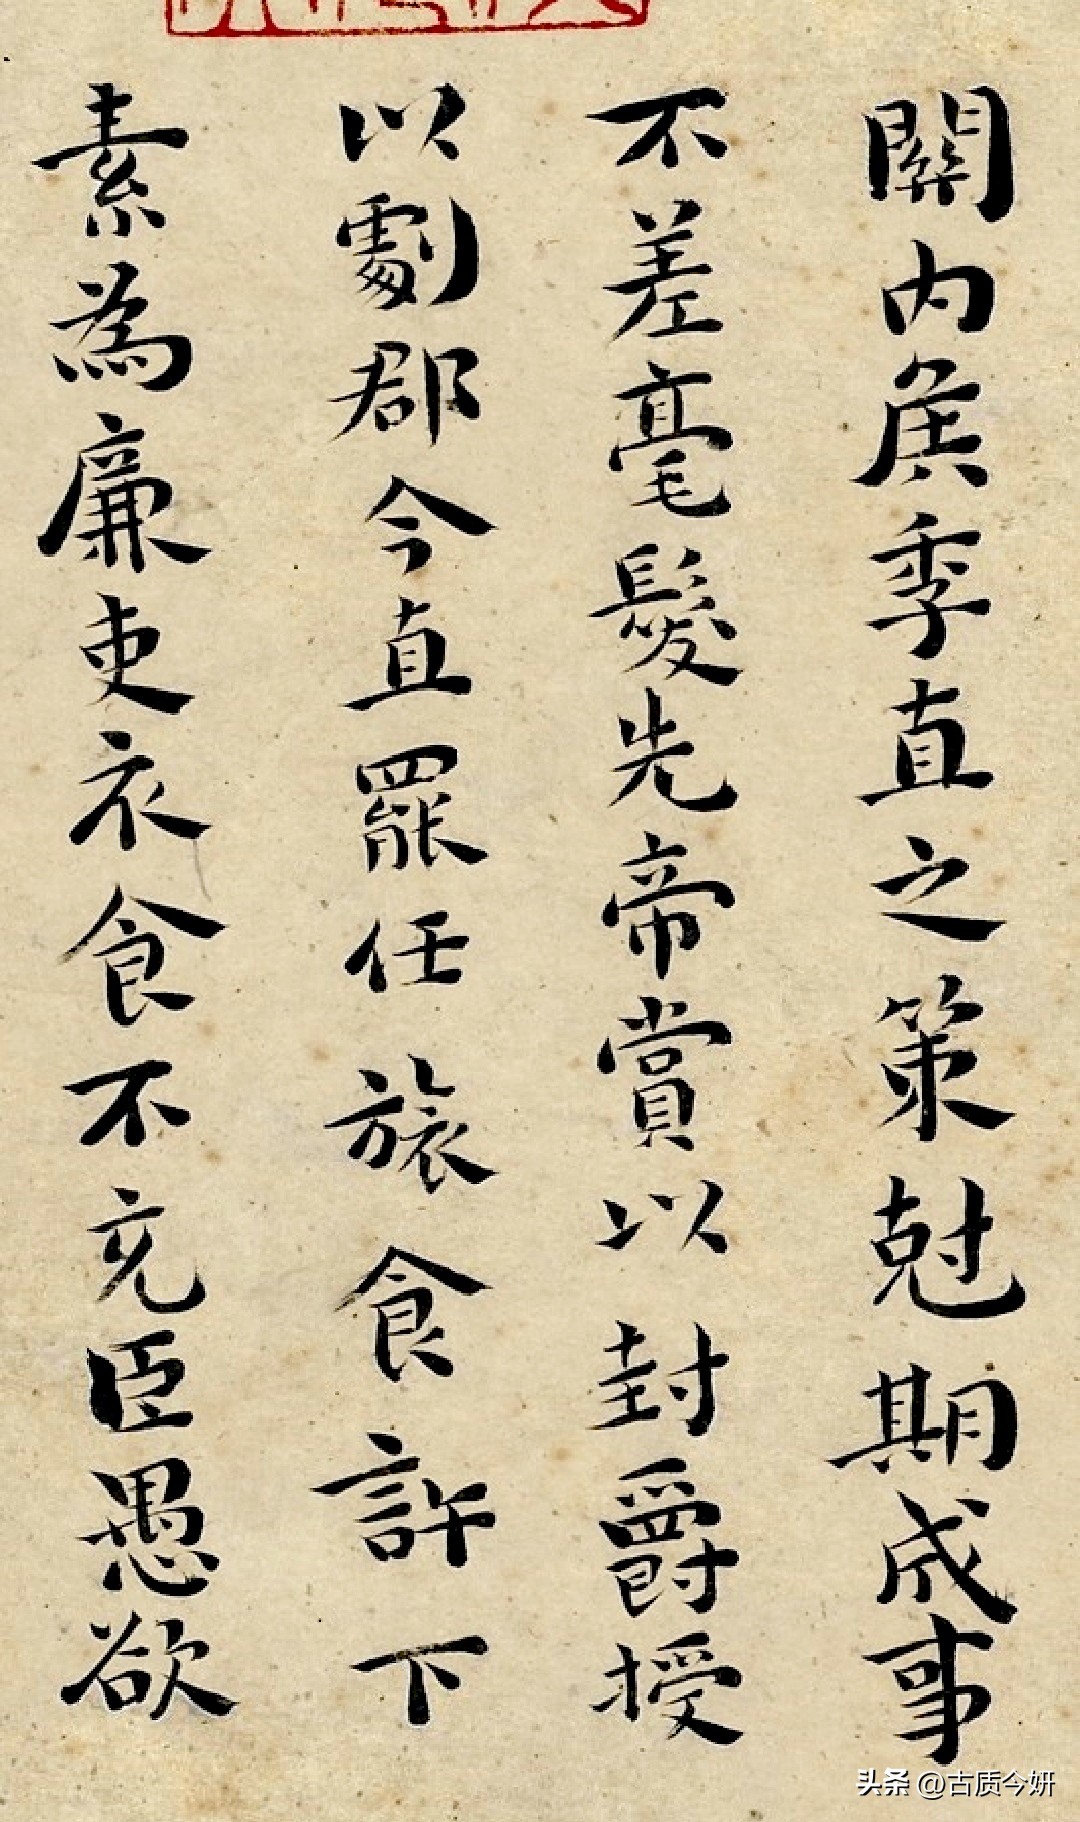 關内侯季直之策尅期成事
不差毫髮先帝賞以封爵授
以劇郡今直罷任旅食許下
素為廉吏衣食不充臣愚欲
头条 @古质今妍